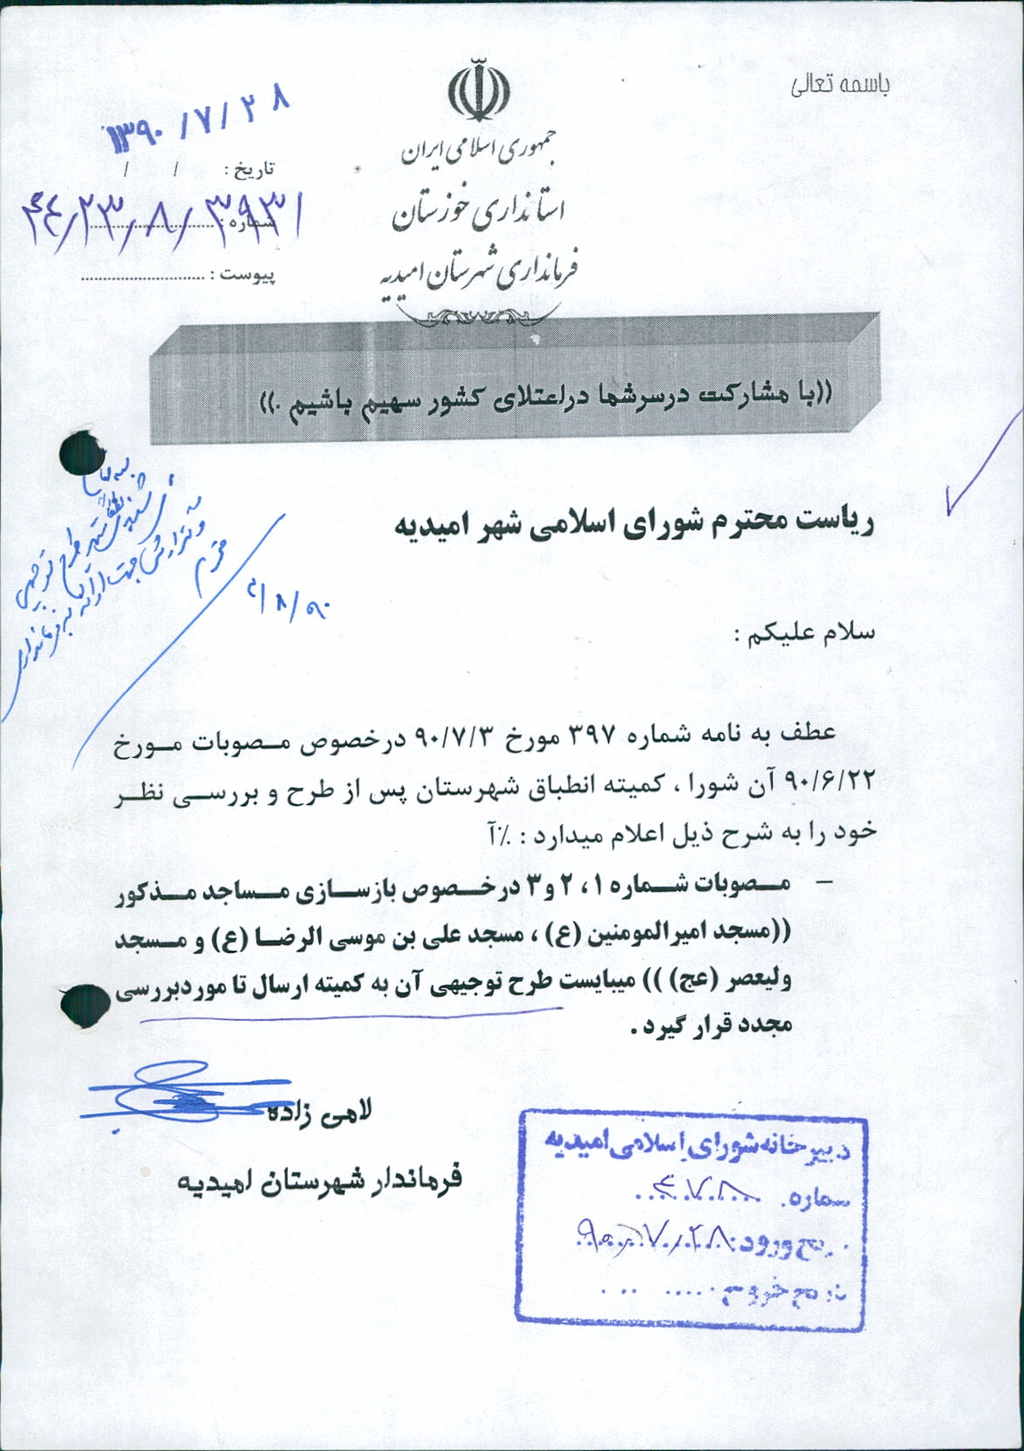 باسمه تعالی
جمهوری اسلامی ایران
استانداری خوزستان
فرمانداری شهرستان امیدیه
۱۳۹۰/۷/۲۸
تاریخ : / /
شماره :
پیوست :
((با مشارکت درسرشما دراعتلای کشور سهیم باشیم .))
ریاست محترم شورای اسلامی شهر امیدیه
۹۰/۸/۲
سلام علیکم :
عطف به نامه شماره ۳۹۷ مورخ ۹۰/۷/۳ درخصوص مصوبات مورخ
۹۰/۶/۲۲ آن شورا ، کمیته انطباق شهرستان پس از طرح و بررسی نظر
خود را به شرح ذیل اعلام میدارد : ٪آ
– مصوبات شماره ۱ ، ۲ و۳ درخصوص بازسازی مساجد مذکور
((مسجد امیرالمومنین (ع) ، مسجد علی بن موسی الرضا (ع) و مسجد
ولیعصر (عج) )) میبایست طرح توجیهی آن به کمیته ارسال تا موردبررسی
مجدد قرار گیرد .
لامی زاده
فرماندار شهرستان امیدیه
دبیرخانه شورای اسلامی امیدیه
شماره.
ورود: ۹۰/۷/۲۸